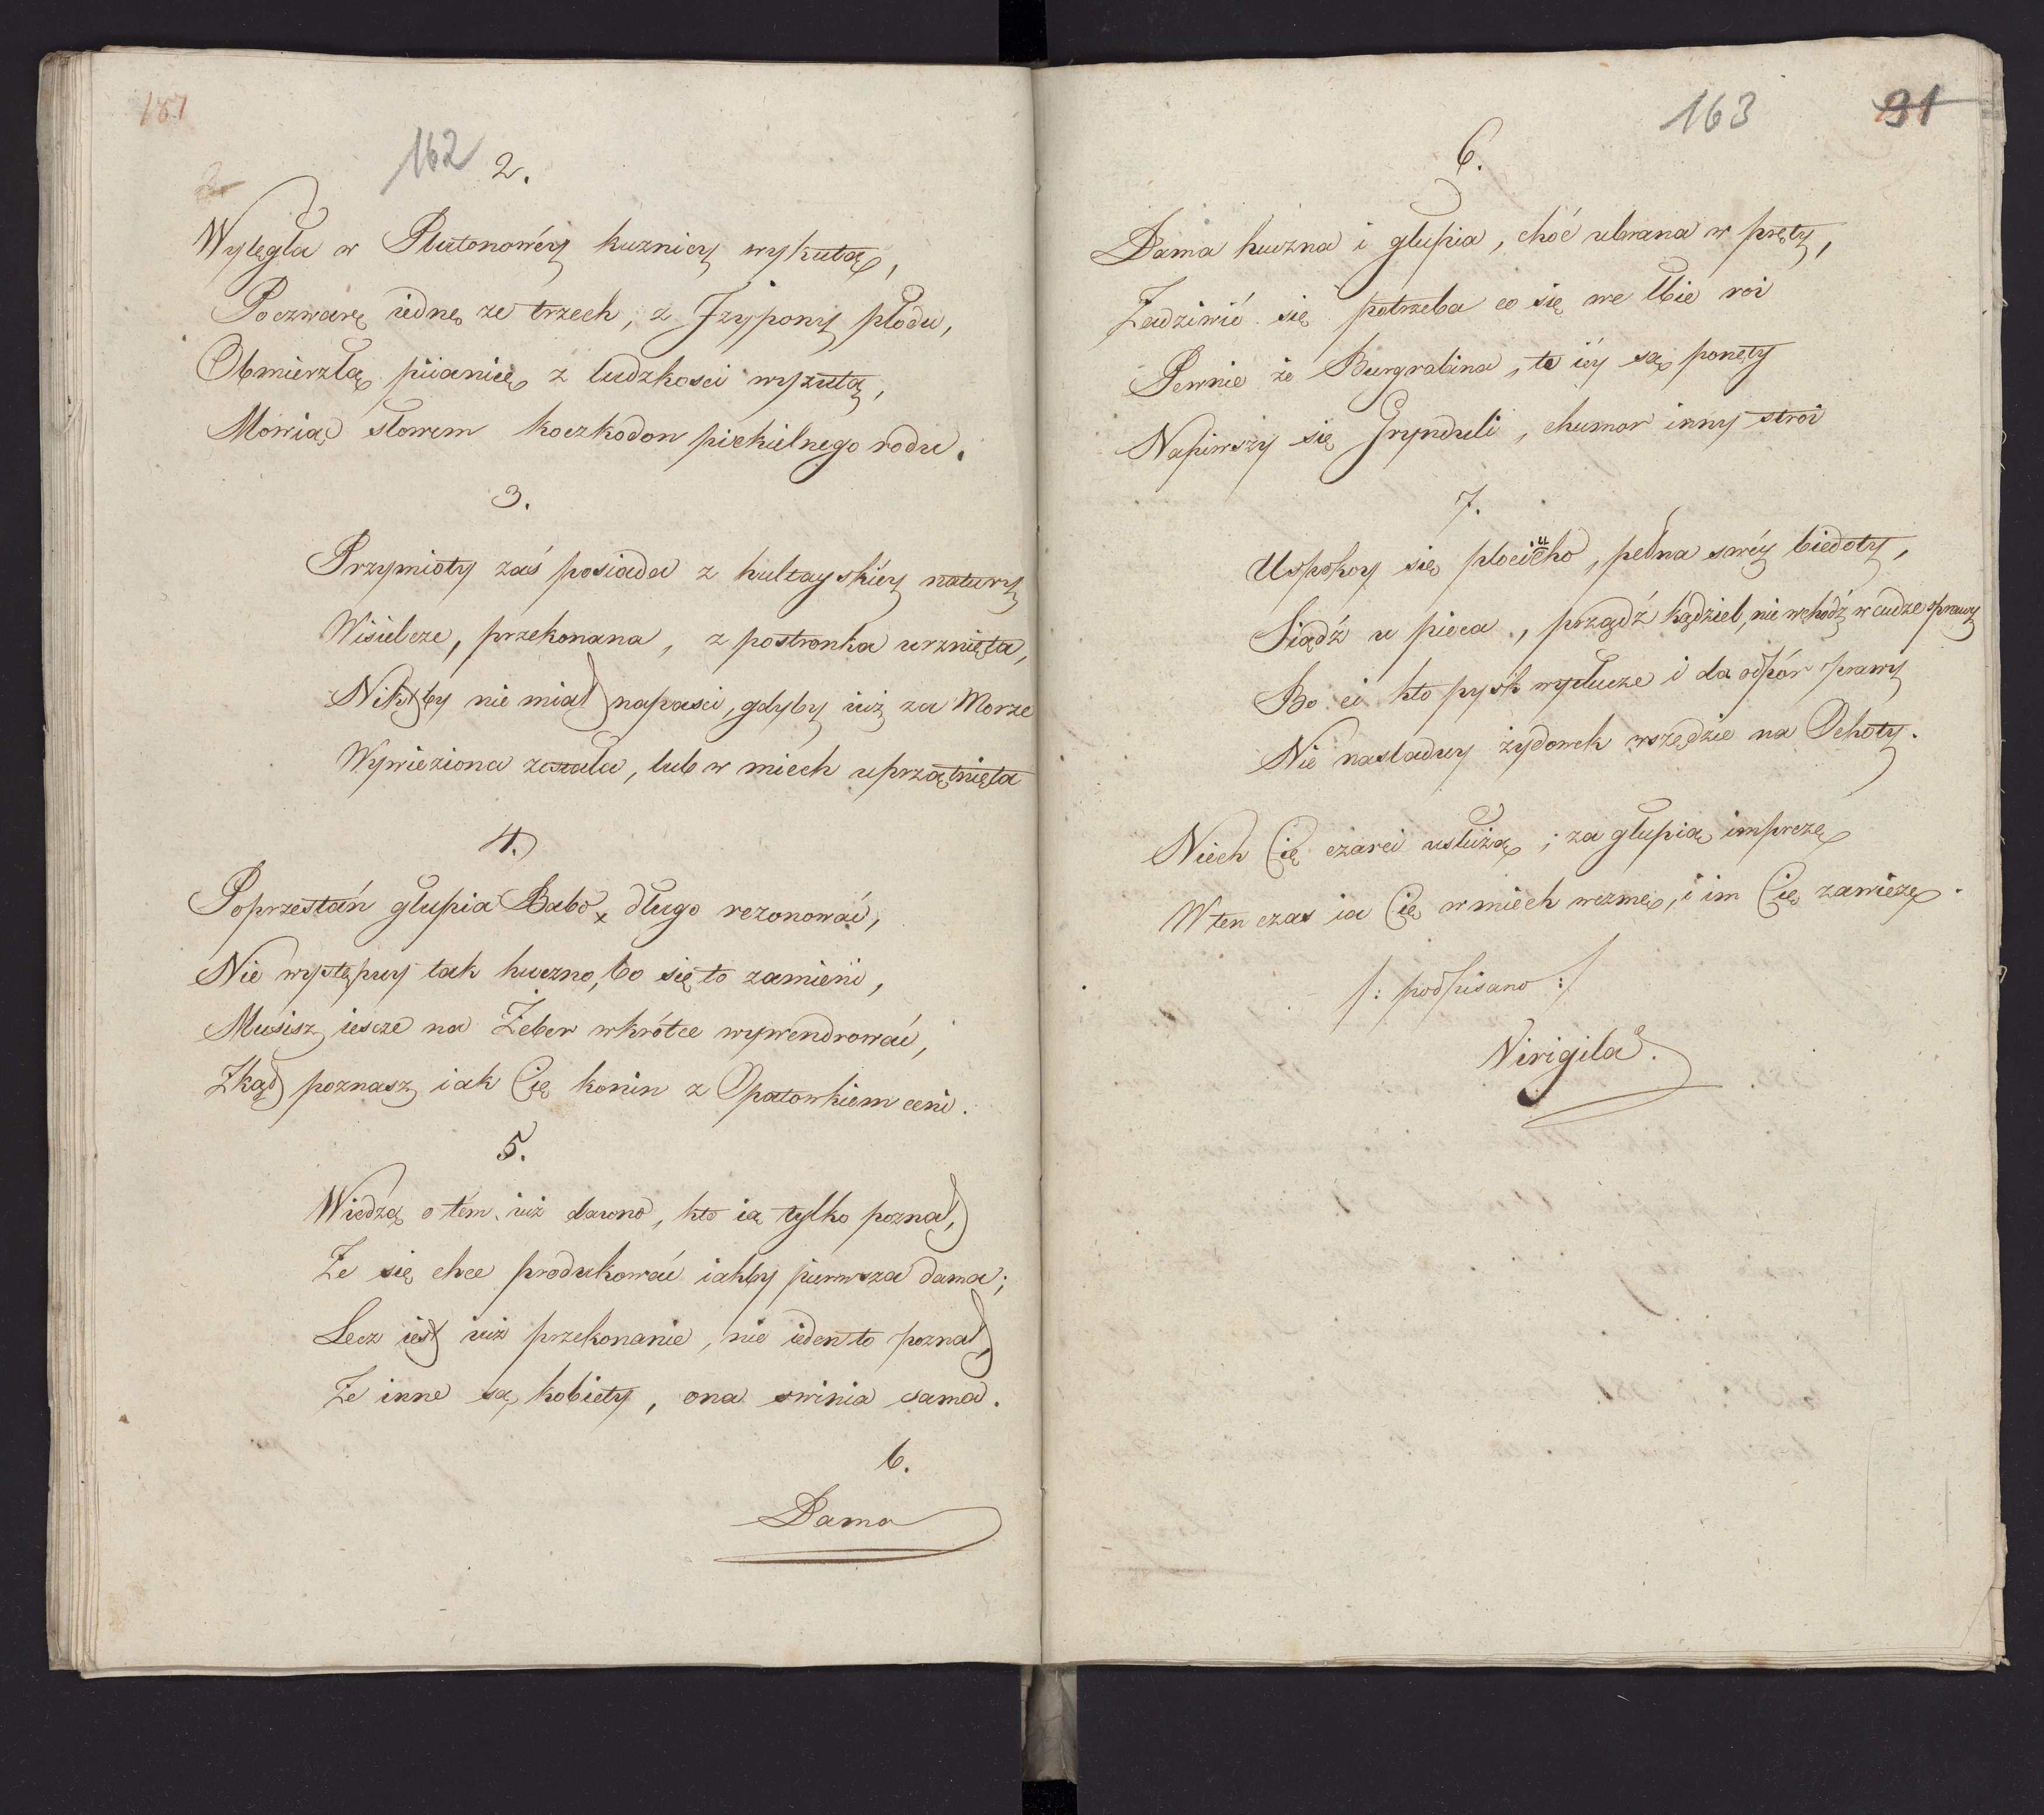 187
162
2.
Wylęgła w Plutonowéy kuznicy wykutą,
Poczwarę iednę ze trzech, z Jzypony płodu,
Obmierzłą piianicę z ludzkosci wyzutą,
Mowiąc słowem koczkodon piekielnego rodu.
3.
Przymioty zaś posiada z hultayskiéy natury
Wisielcze, przekonana, z postronka urznięta,
Nikt by nie miał napasci, gdyby iuż za Morze
Wywieziona została, lub w miech uprzątnięta
4.
Poprzestań głupia Babo x długo rezonować,
Nie występuy tak huczno, bo się to zamieni,
Musisz iescze na Żeber wkrótce wywendrować,
Zkąd poznasz iak Cię konin z Opatowkiem ceni.
5.
Wiedzą o tém iuż dawno, kto ią tylko poznał,
Że się chce produkować iakby pierwsza dama;
Lecz iest iuż przekonanie, nie ieden to poznał,
Że inne są kobiety, ona swinia sama.
6.
Dama
163
91
6.
Dama huczna i głupia, choć ubrana w pręty,
Zadziwić się potrzeba co się we łbie roi
Pewnie że Burgrabina, te iéy są ponęty
Napiwszy się Grynduli, chumor inny stroi
7.
Uspokoy się plociucho, pełna swéy biedoty,
Siądź u pieca, prządź kądziel, nie wchodź w cudze sprawy
Bo ci kto pysk wytłucze i da odpór prawy
Nie nasladuy żydowek wszędzie na Ochoty.
Niech Cię czarci usłużą; za głupią imprezę
W ten czas ia Cię w miech wezmę, i im Cię zawiezę.
/: podpisano :/
Nirigila.